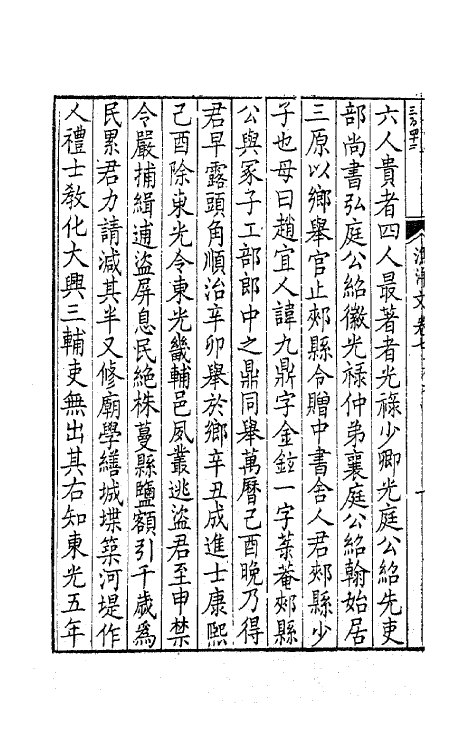 六人貴者四人最著者光祿少卿光庭公紹先吏
部尚書弘庭公紹徽光祿仲弟襄庭公紹翰始居
三原以鄉舉官止郟縣令贈中書舍人君郟縣少
子也母曰趙宜人諱九鼎字金鉉一字萊菴郟縣
公與冢子工部郎中之鼎同舉萬曆己酉晚乃得
君早露頭角順治辛卯舉於鄉辛丑成進士康熙
己酉除東光令東光畿輔邑夙叢逃盜君至申禁
令嚴捕緝逋盜屏息民絶株蔓縣鹽額引千歲爲
民累君力請減其半又修廟學繕城堞築河堤作
人禮士敎化大興三輔吏無出其右知東光五年